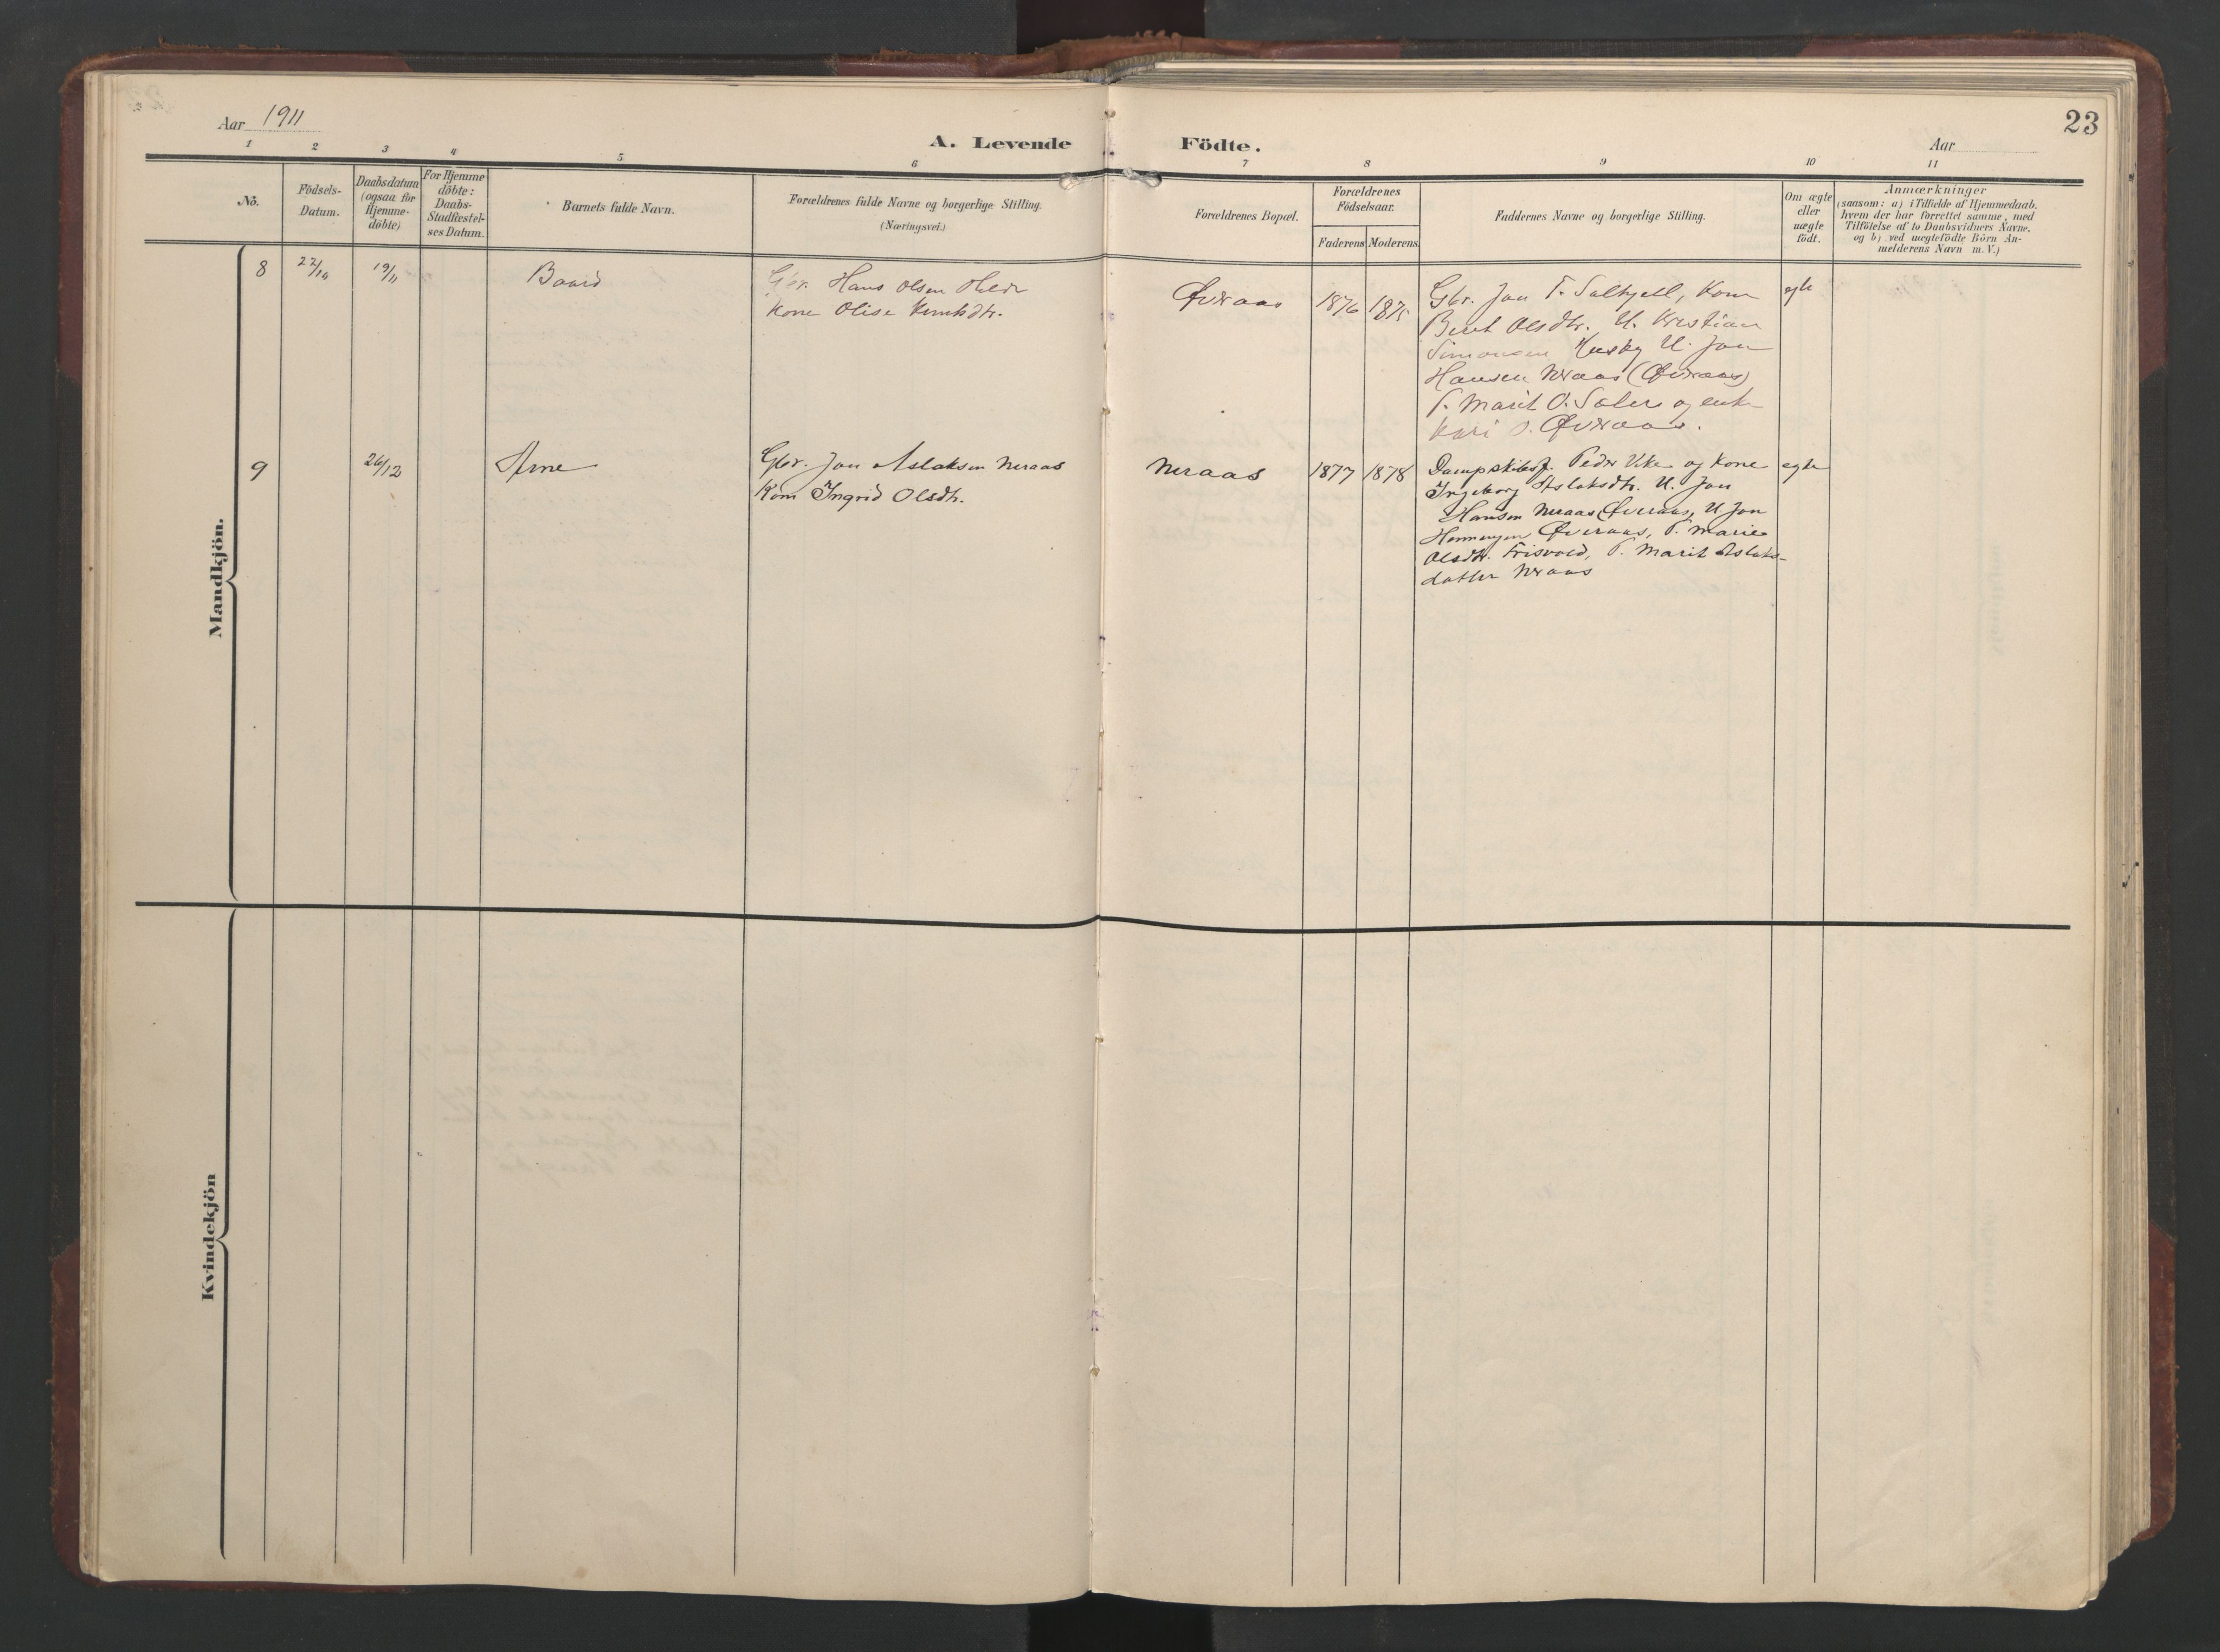 23
Aar 1911
A. Levende Födte.
Aar
1 2 3 4 5 6 7 8 9 10 11
No.
Födsels-
Datum.
Daabsdatum
(ogsaa for
Hjemme-
döbte)
For Hjemme
döbte:
Daabs-
Stadfæstel-
ses Datum.
Barnets fulde Navn.
Forældrenes fulde Navne og borgerlige Stilling.
(Næringsvei.)
Forældrenes Bopæl.
Forældrenes
Födselsaar.
Faderens Moderens
Faddernes Navne og borgerlige Stilling.
Om ægte
eller
uægte
födt.
Anmærkninger
(saasom: a) i Tilfælde af Hjemmedaab,
hvem der har forrettet samme, med
Tilföielse af to Daabsvidners Navne,
og b) ved uægtefödte Börn An-
melderens Navn m. V.)
Mandkjön.
8 22/10 19/11 Baard
Gbr. Hans Olsen
Kone Olise
Øveraas 1876 1875
Gbr. Jon T. Kone
Berit Olsdtr. U. Kristian
Simonsen Husby U. Jon
Hansen Neraas (Øveraas)
P. Marit O. og enke
Kari Øveraas.
egte
9 26/12 Arne
Gbr. Jon Aslaksen Neraas
Kone Ingrid Olsdtr.
Neraas 1877 1878
Peder Vike og Kone
Ingeborg Aslaksdtr. U. Jon
Hansen Neraas (Øveraas, U Jon
Henningsen Øveraas, P. Marie
Olsdtr. Frisvold, P. Marit Aslaks-
datter Neraas
egte
Kvindekjön